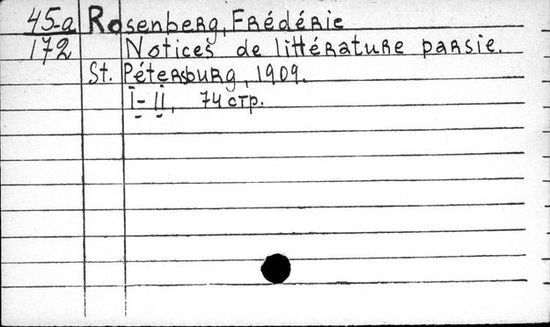 45-a Rosenberg, Frédéric
172 Notices de littérature parsie.
St. Pétersburg, 1909.
I-II, 74 стр.